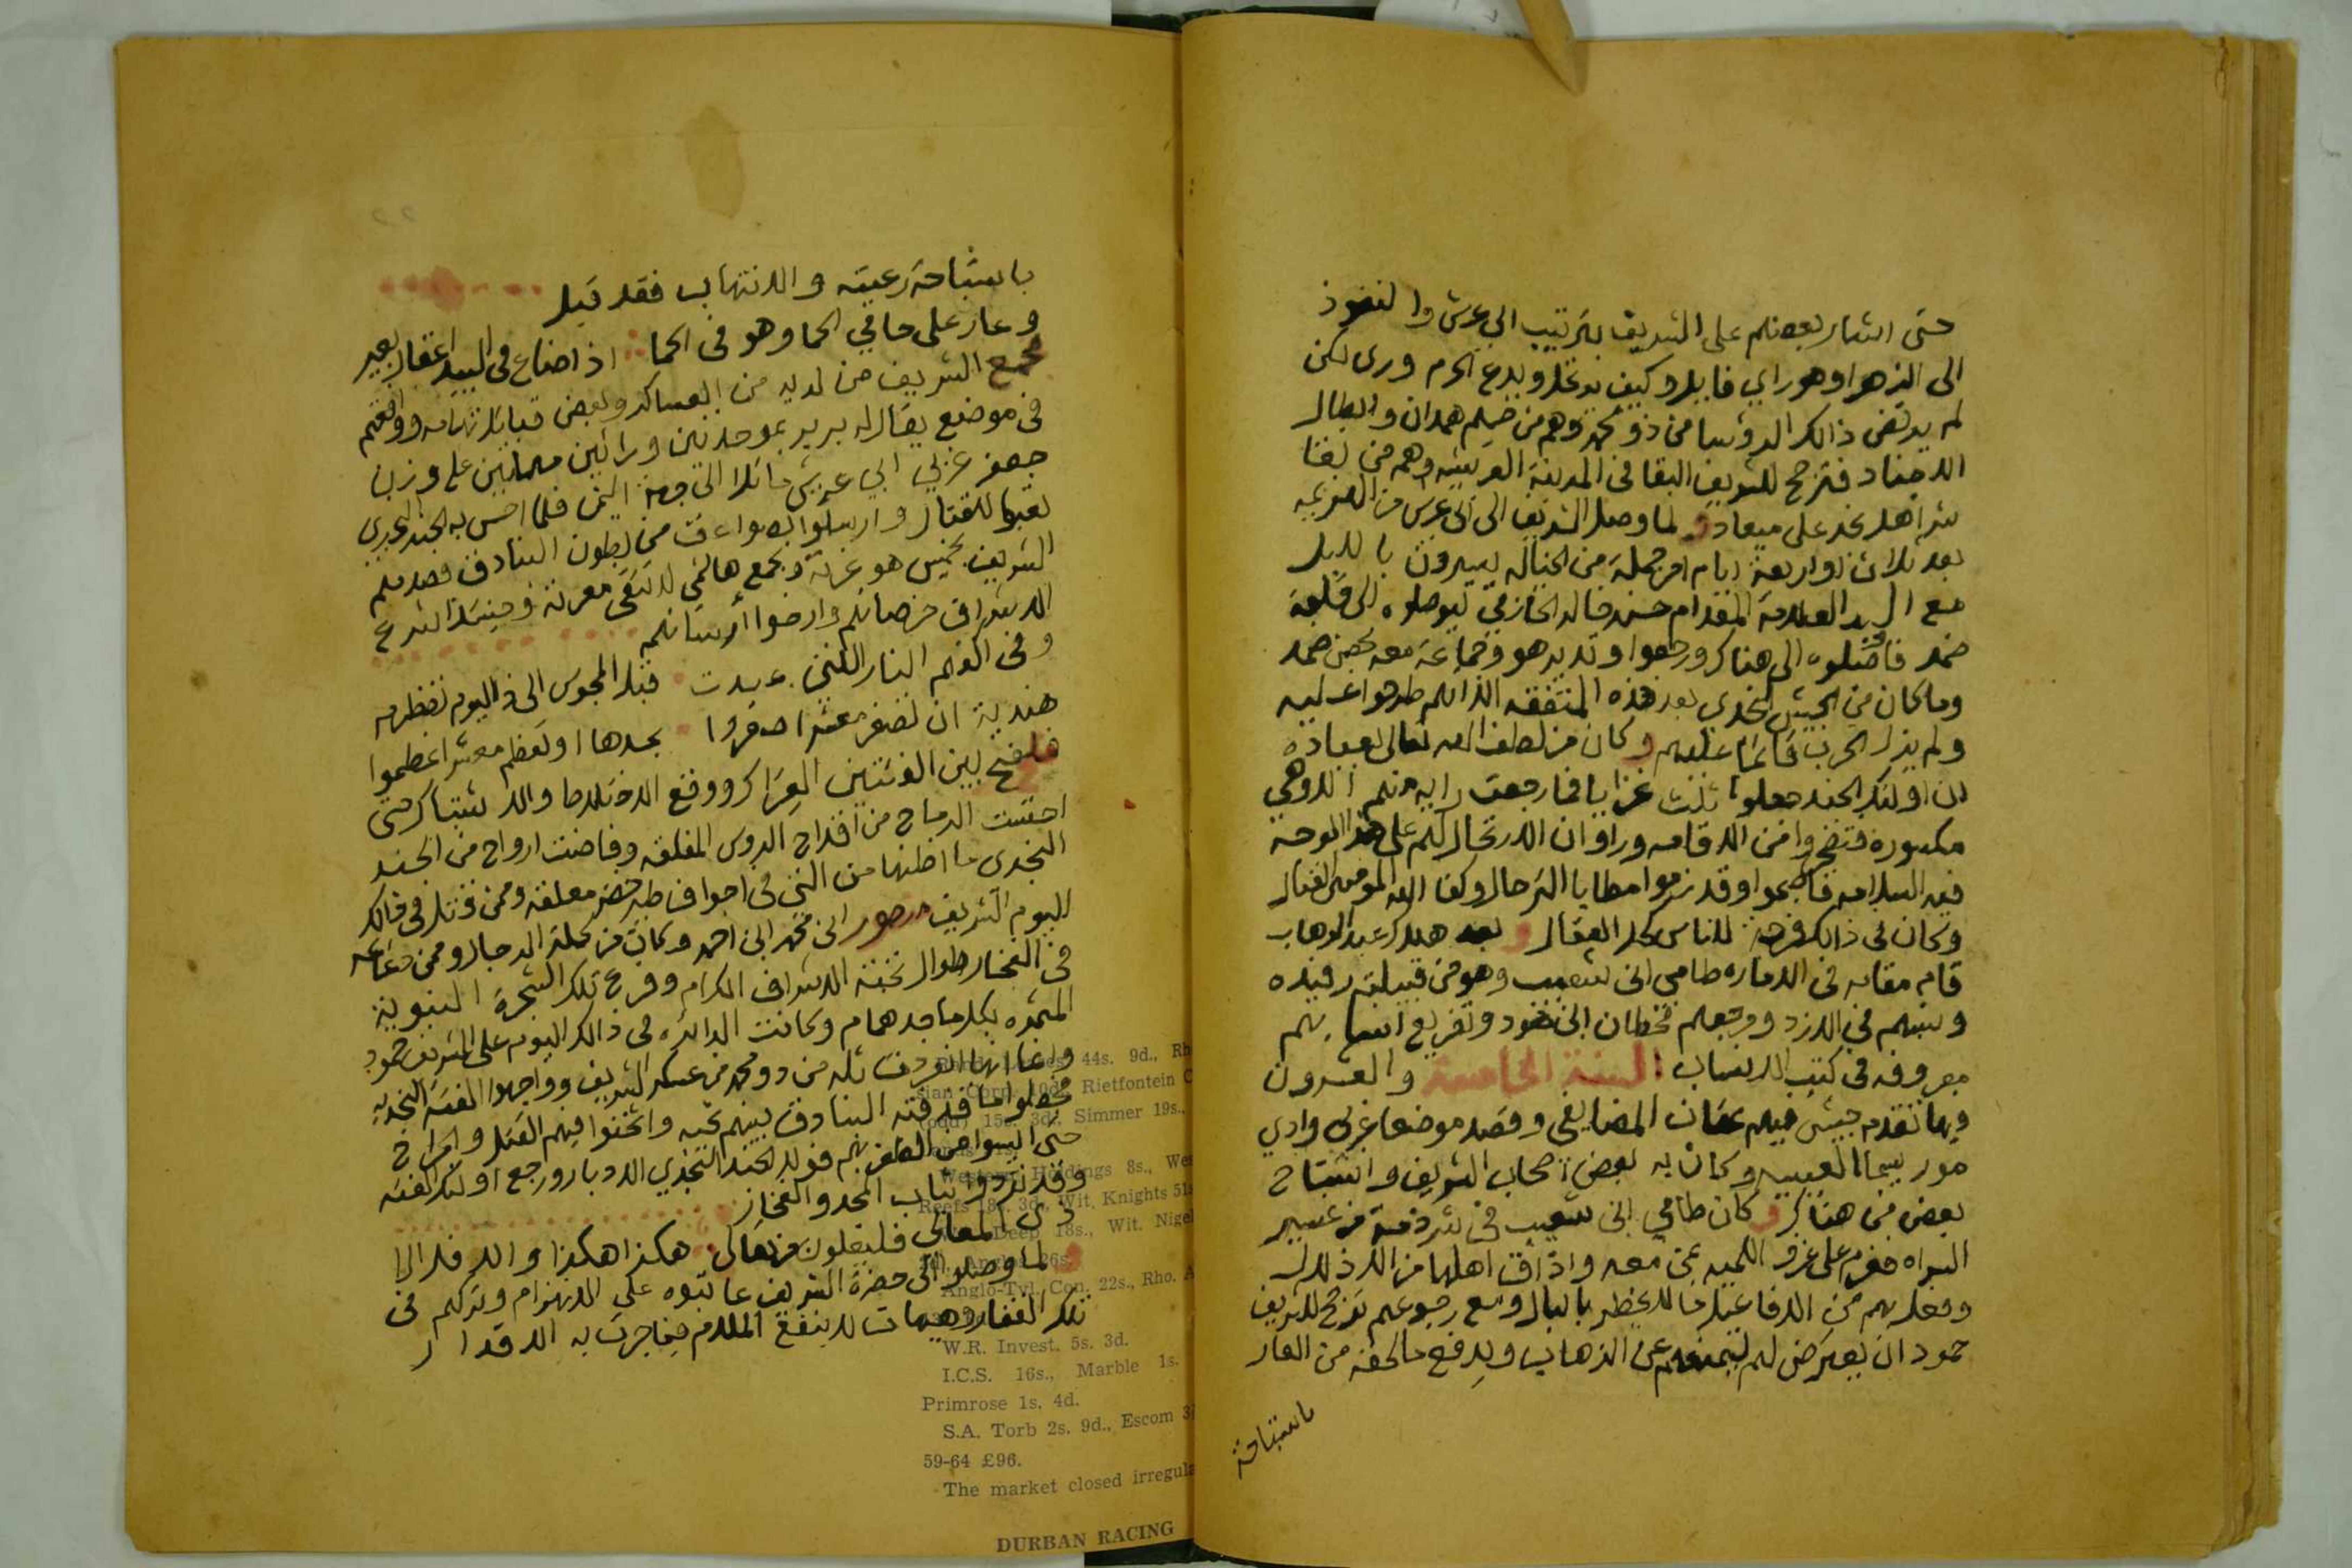 حتى اشار بعضهم على الشريف بترتيب ابي عرش والنفوذ
الى الزهرا وهو راي فايل وكيف يدخل ويدع الحرم ورى لكن
لم يرتض ذالك الروسا من ذو محمد وهم من صيلم همدان وابطال
الاجناد فترجح للشريف البقا في المدينة العريشيه وهم من لقا
شر اهل نجد على ميعاد ولما وصل الشريف الى ابي عرش من
بعد ثلاث او اربعة ايام امر جملة من الخياله يسيرون بالليل
مع العلامة المقدام حسن خالد الحازمي ليوصلوه الى قلعة
ضمد فاوصلوه الى هناك ورجعوا وتديره هو وجماعة معه بحصن ضمد
وما كان من الجيش النجدي بعد هذه المتفقه الا انهم طرحوا عليه
ولم يزل الحرب قائما عليهم وكان من لطف الله تعالى بعباده
ان اولئك الجند جعلوا ثلاث غزايا فما رجعت رايه منهم الا وهي
مكسوره فتضجروا من الاقامه وراوا ان الارتحال لهم على هذا الوجه
فيه السلامه فاصبحوا وقد زموا مطايا الترحال وكفا الله المومنين القتال
وكان في ذالك فرحة للناس بحل العقال وبعد هلاك عبد الوهاب
قام مقامه في الاماره طامي ابن شعيب وهو من قبيلته رفيده
ونسبهم في الازد ومرجعهم قحطان ابن هود وتفريع انسابهم
معروفه في كتب الانساب السنة الخامسة والعشرون
وبها تقدم جيش فيهم عثمان المضايفي وقصد موضعا غربي وادي
مور يسما العبيسه وكان به بعض اصحاب الشريف واستباح
بعض من هناك وكان طامي ابن شعيب في شرذمة من عسير
السراه فعزم على غزو اللحيه بمن معه واذاق اهلها من الاذلال
وفعل بهم من الافاعيل ما لا يخطر بالبال ومع رجوعهم ترجح للشريف
حمود ان يعترض لهم ليمنعهم عن الذهاب ويدفع ما لحقه من العار
باستباحة
باستباحة رعيته والانتهاب فقد قيل
وعار على حامي الحما وهو في الحما اذا ضاع في البيد اعقال بعير
فجمع الشريف من لديه من العساكر وبعض قبائل تهامه ووافقهم
في موضع يقال له برير بموحدتين ورائين مهملتين على وزن
جعفر غربي ابي عريش مائلا الى جهة اليمن فلما احس به الجند النجدي
تعبوا للقتال وارسلوا الصواعق من بطون البنادق فصدمهم
الشريف بخميس هو غرته وبجمع هالمني لا يتقى معرته وحينئذ اشرع
الاشراف خرصانهم وارضوا ارسانهم
وفي اكفهم النار اللتي عبدت قبل المجوس الى ذا اليوم تضطرم
هندية ان تصغر معشرا صغروا بحدها او تعظم معشرا عظموا
فلفح بين الفئتين العراك ووقع الاختلاط والاشتباك حتى
احتست الرماح من اقداح الروس المغلقه وفاضت ارواح من الجند
النجدي ما اظنها من النتن في اجواف طير خضر معلقه وممن قتل في ذالك
اليوم الشريف منصور ابن محمد ابن احمد وكان من جملة الرجال وممن دعائمه
في الفخار طوال نخبة الاشراف الكرام وفرع تلك الشجرة النبوية
المثمره بكل ماجد همام وكانت الدائره في ذالك اليوم على الشريف حمود
وانما انها انفردت ثلة من ذو محمد من عسكر الشريف وواجهوا الفئة النجديه
فجعلوا ما قذفته البنادق بينهم تحيه واثخنوا فيهم القتل والجراح
حتى ايسوا من الظفر بهم فولا الجند النجدي الادبار ورجع اولئك الفئه
وقد تردوا ثياب المجد والفخار
ذي المعالي فليعلون من تعالى هكذا هكذا والا فلا لا
لما وصلوا الى حضرة الشريف عاتبوه على الانهزام وتركهم في
تلك القفار وهيهات لا ينفع الملام فيما جرت به الاقدار
44s. 9d., Rh
Rietfontein C
15s. 3d., Simmer 19s.,
Western Holdings 8s., We
Reefs 18s. 3d., Wit. Knights 51s
Deep 18s., Wit. Nigel
26s.
Anglo-Tvl. Con. 22s., Rho. A
W.R. Invest. 5s. 3d.
I.C.S. 16s., Marble 1s.
Primrose 1s. 4d.
S.A. Torb 2s. 9d., Escom 3
59-64 £96.
The market closed irregula
DURBAN RACING